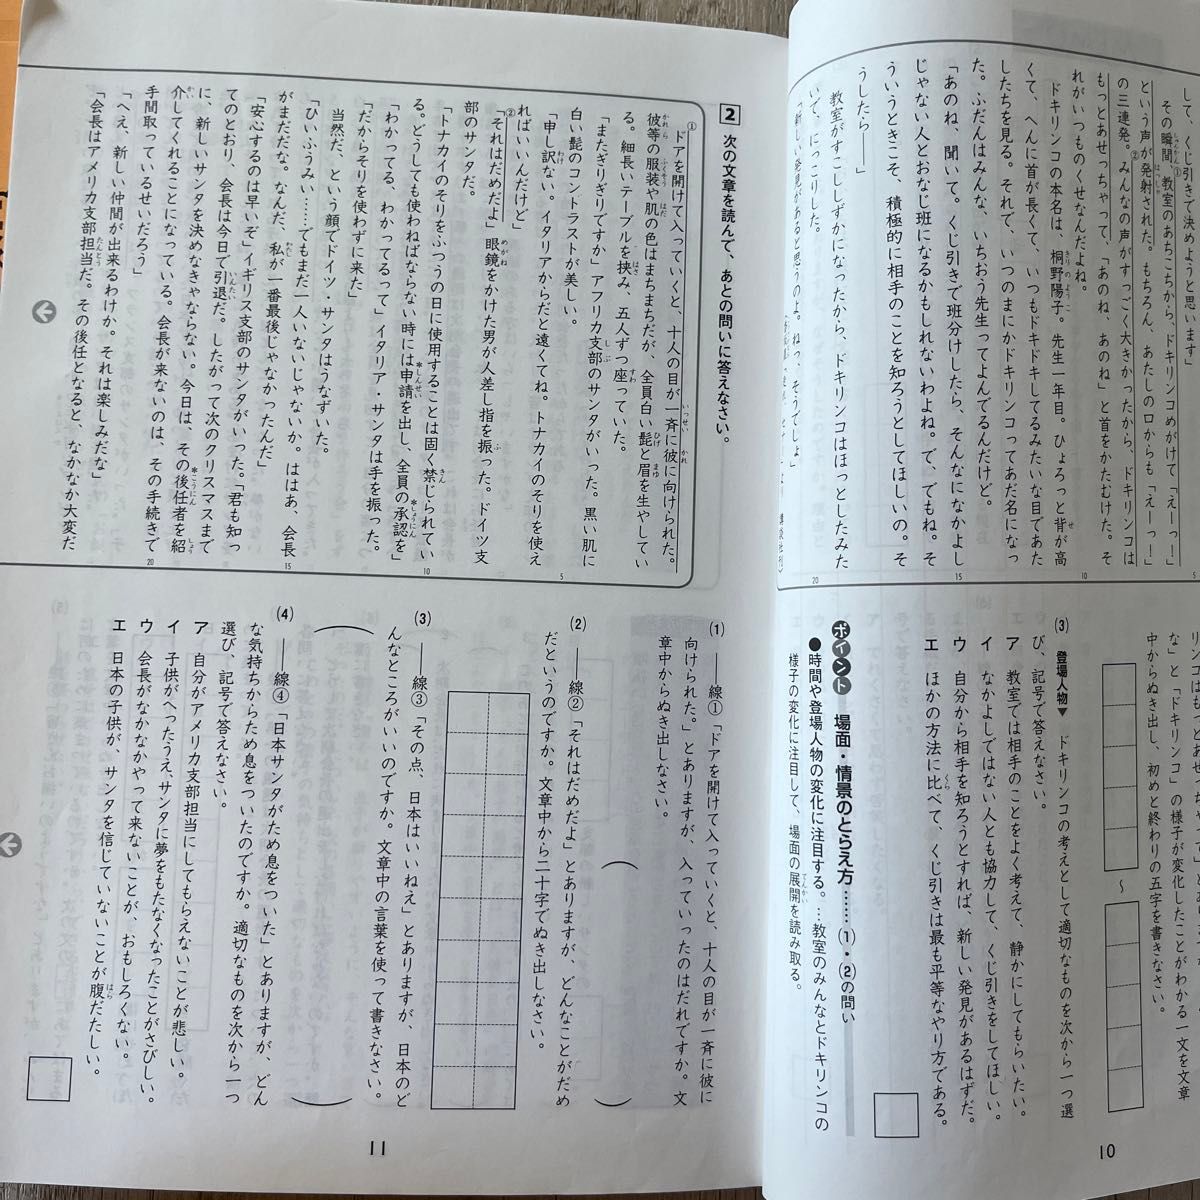 して、くじ引きで決めようと思います」
その瞬間、教室のあちこちから、ドキリンコめがけて「えーっ！」
という声が発射された。もちろん、あたしの口からも「えーっ！」
の三連発。みんなの声がすっごく大きかったから、ドキリンコは
もっとあせっちゃって、「あのね、あのね」と首をかたむけた。そ
れがいつものくせなんだよね。
ドキリンコの本名は、桐野陽子。先生一年目。ひょろっと背が高
くて、へんに首が長くて、いつもドキドキしてるみたいな目であた
したちを見る。それで、いつのまにかドキリンコってあだ名になっ
た。ふだんはみんな、いちおう先生ってよんでるんだけど。
「あのね、聞いて。くじ引きで班分けしたら、そんなになかよし
じゃない人とおなじ班になるかもしれないわよね。で、でもね。そ
ういうときこそ、積極的に相手のことを知ろうとしてほしいの。そ
うしたら――」
教室がすこししずかになったから、ドキリンコはほっとしたみた
いで、にっこりした。
「新しい発見があると思うのよ。ねっ、そうでしょ」
リンコは
な」と「ドキリンコ」の様子が変化したことがわかる一文を文章
中からぬき出し、初めと終わりの五字を書きなさい。
〜
(3) 登場人物▼ ドキリンコの考えとして適切なものを次から一つ選
び、記号で答えなさい。
ア 教室では相手のことをよく考えて、静かにしてもらいたい。
イ なかよしではない人とも協力して、くじ引きをしてほしい。
ウ 自分から相手を知ろうとすれば、新しい発見があるはずだ。
エ ほかの方法に比べて、くじ引きは最も平等なやり方である。
ポイント 場面・情景のとらえ方………(1)・(2)の問い
●時間や登場人物の変化に注目する。…教室のみんなとドキリンコの
様子の変化に注目して、場面の展開を読み取る。
10
2 次の文章を読んで、あとの問いに答えなさい。
①ドアを開けて入っていくと、十人の目が一斉に彼に向けられた。
彼等の服装や肌の色はまちまちだが、全員白い髭と眉を生やしてい
る。細長いテーブルを挟み、五人ずつ座っていた。
「またぎりぎりですか」アフリカ支部のサンタがいった。黒い肌に
白い髭のコントラストが美しい。
「申し訳ない。イタリアからだと遠くてね。トナカイのそりを使え
ればいいんだけど」
②「それはだめだよ」眼鏡をかけた男が人差し指を振った。ドイツ支
部のサンタだ。
「トナカイのそりをふつうの日に使用することは固く禁じられてい
る。どうしても使わねばならない時には申請を出し、全員の承認を」
「わかってる、わかってるって」イタリア・サンタは手を振った。
「だからそりを使わずに来た」
当然だ、という顔でドイツ・サンタはうなずいた。
「ひい、ふうみい……でもまだ一人いないじゃないか。ははあ、会長
がまだだな。なんだ、私が一番最後じゃなかったんだ」
「安心するのは早いぞ」イギリス支部のサンタがいった。「君も知っ
てのとおり、会長は今日で引退だ。したがって次のクリスマスまで
に、新しいサンタを決めなきゃならない。今日は、その後任者を紹
介してくれることになっている。会長が来ないのは、その手続きで
手間取っているせいだろう」
「へえ、新しい仲間が出来るわけか。それは楽しみだな」
「会長はアメリカ支部担当だ。その後任となると、なかなか大変だ
(1) ――線①「ドアを開けて入っていくと、十人の目が一斉に彼に
向けられた。」とありますが、入っていったのはだれですか。文
章中からぬき出しなさい。
(2) ――線②「それはだめだよ」とありますが、どんなことがだめ
だというのですか。文章中から二十字でぬき出しなさい。
(3) ――線③「その点、日本はいいねえ」とありますが、日本のど
んなところがいいのですか。文章中の言葉を使って書きなさい。
(4) ――線④「日本サンタがため息をついた」とありますが、どん
な気持ちからため息をついたのですか。適切なものを次から一つ
選び、記号で答えなさい。
ア 自分がアメリカ支部担当にしてもらえないことが悲しい。
イ 子供がへったうえ、サンタに夢をもたなくなったことがさびしい。
ウ 会長がなかなかやって来ないことが、おもしろくない。
エ 日本の子供が、サンタを信じていないことが腹だたしい。
11